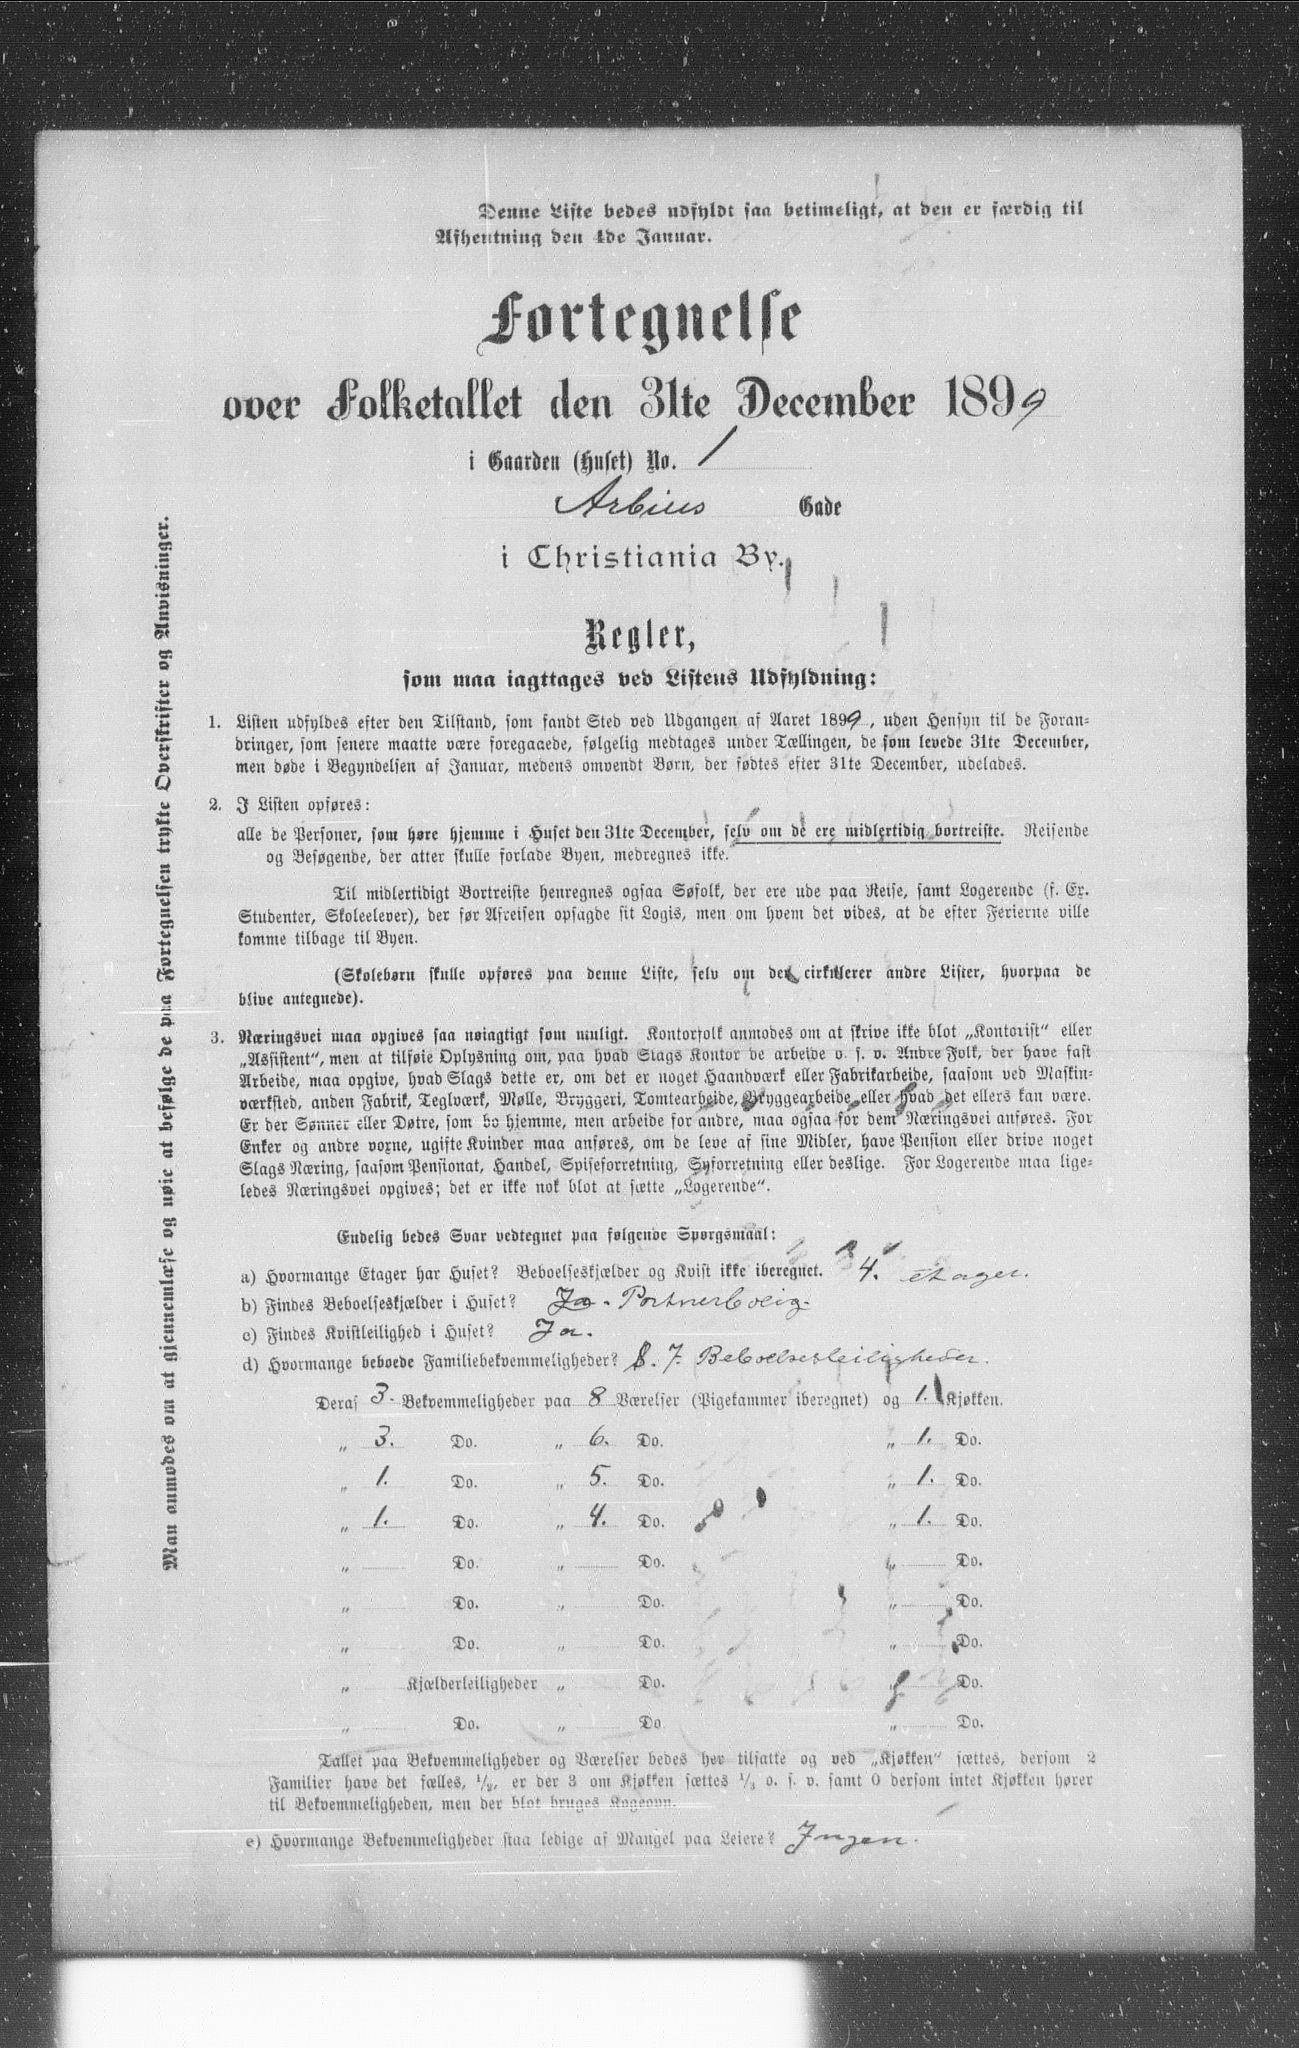 Denne Liste bedes udfyldt saa betimeligt, at den er færdig til
Afhentning den 4de Januar.
Fortegnelse
over Folketallet den 31te December 1899
i Gaarden (Huset) No. 1
Arbius Gade
i Christiania By.
Regler,
som maa iagttages ved Listens Udfyldning:
1. Listen udfyldes efter den Tilstand, som fandt Sted ved Udgangen af Aaret 1899, uden Hensyn til de Foran-
dringer, som senere maatte være foregaaede, følgelig medtages under Tællingen, de som levede 31te December,
men døde i Begyndelsen af Januar, medens omvendt Børn, der fødtes efter 31te December, udelades.
2. I Listen opføres:
alle de Personer, som høre hjemme i Huset den 31te December, selv om de ere midlertidig bortreiste. Reisende
og Besøgende, der atter skulle forlade Byen, medregnes ikke.
Til midlertidigt Bortreiste henregnes ogsaa Søfolk, der ere ude paa Reise, samt Logerende (f. Ex.
Studenter, Skoleelever), der før Afreisen opsagde sit Logis, men om hvem det vides, at de efter Ferierne ville
komme tilbage til Byen.
(Skolebørn skulle opføres paa denne Liste, selv om der cirkulerer andre Lister, hvorpaa de
blive antegnede).
3. Næringsvei maa opgives saa nøiagtigt som muligt. Kontorfolk anmodes om at skrive ikke blot „Kontorist“ eller
„Assistent“, men at tilføie Oplysning om, paa hvad Slags Kontor de arbeide o. s. v. Andre Folk, der have fast
Arbeide, maa opgive, hvad Slags dette er, om det er noget Haandværk eller Fabrikarbeide, saasom ved Maskin-
værksted, anden Fabrik, Teglværk, Mølle, Bryggeri, Tomtearbeide, Bryggearbeide eller hvad det ellers kan være.
Er der Sønner eller Døtre, som bo hjemme, men arbeide for andre, maa ogsaa for dem Næringsvei anføres. For
Enker og andre voxne, ugifte Kvinder maa anføres, om de leve af sine Midler, have Pension eller drive noget
Slags Næring, saasom Pensionat, Handel, Spiseforretning, Syforretning eller deslige. For Logerende maa lige-
ledes Næringsvei opgives; det er ikke nok blot at sætte „Logerende“.
Endelig bedes Svar vedtegnet paa følgende Spørgsmaal:
a) Hvormange Etager har Huset? Beboelseskjælder og Kvist ikke iberegnet. 4. etager.
b) Findes Beboelseskjælder i Huset? Ja. Portnerbolig.
c) Findes Kvistleilighed i Huset? Ja.
d) Hvormange beboede Familiebekvemmeligheder? 8. 7. Beboelsesleiligheder.
Deraf 3. Bekvemmeligheder paa 8 Værelser (Pigekammer iberegnet) og 1. Kjøkken.
„ 3. Do. „ 6. Do. „ 1. Do.
„ 1. Do. „ 5. Do. „ 1. Do.
„ 1. Do. „ 4. Do. „ 1. Do.
„ Do. „ Do. „ Do.
„ Do. „ Do. „ Do.
„ Do. „ Do. „ Do.
„ Kjælderleiligheder „ Do. „ Do.
„ Do. „ Do „ Do.
Tallet paa Bekvemmeligheder og Værelser bedes her tilsatte og ved „Kjøkken“ sættes, dersom 2
Familier have det fælles, 1/2, er der 3 om Kjøkken sættes 1/3 o. s. v. samt 0 dersom intet Kjøkken hører
til Bekvemmeligheden, men der blot bruges Kogeovn.
e) Hvormange Bekvemmeligheder staa ledige af Mangel paa Leiere? Ingen.
Man anmodes om at gjennemlæse og nøie at befølge de paa Fortegnelsen trykte Overskrifter og Anvisninger.